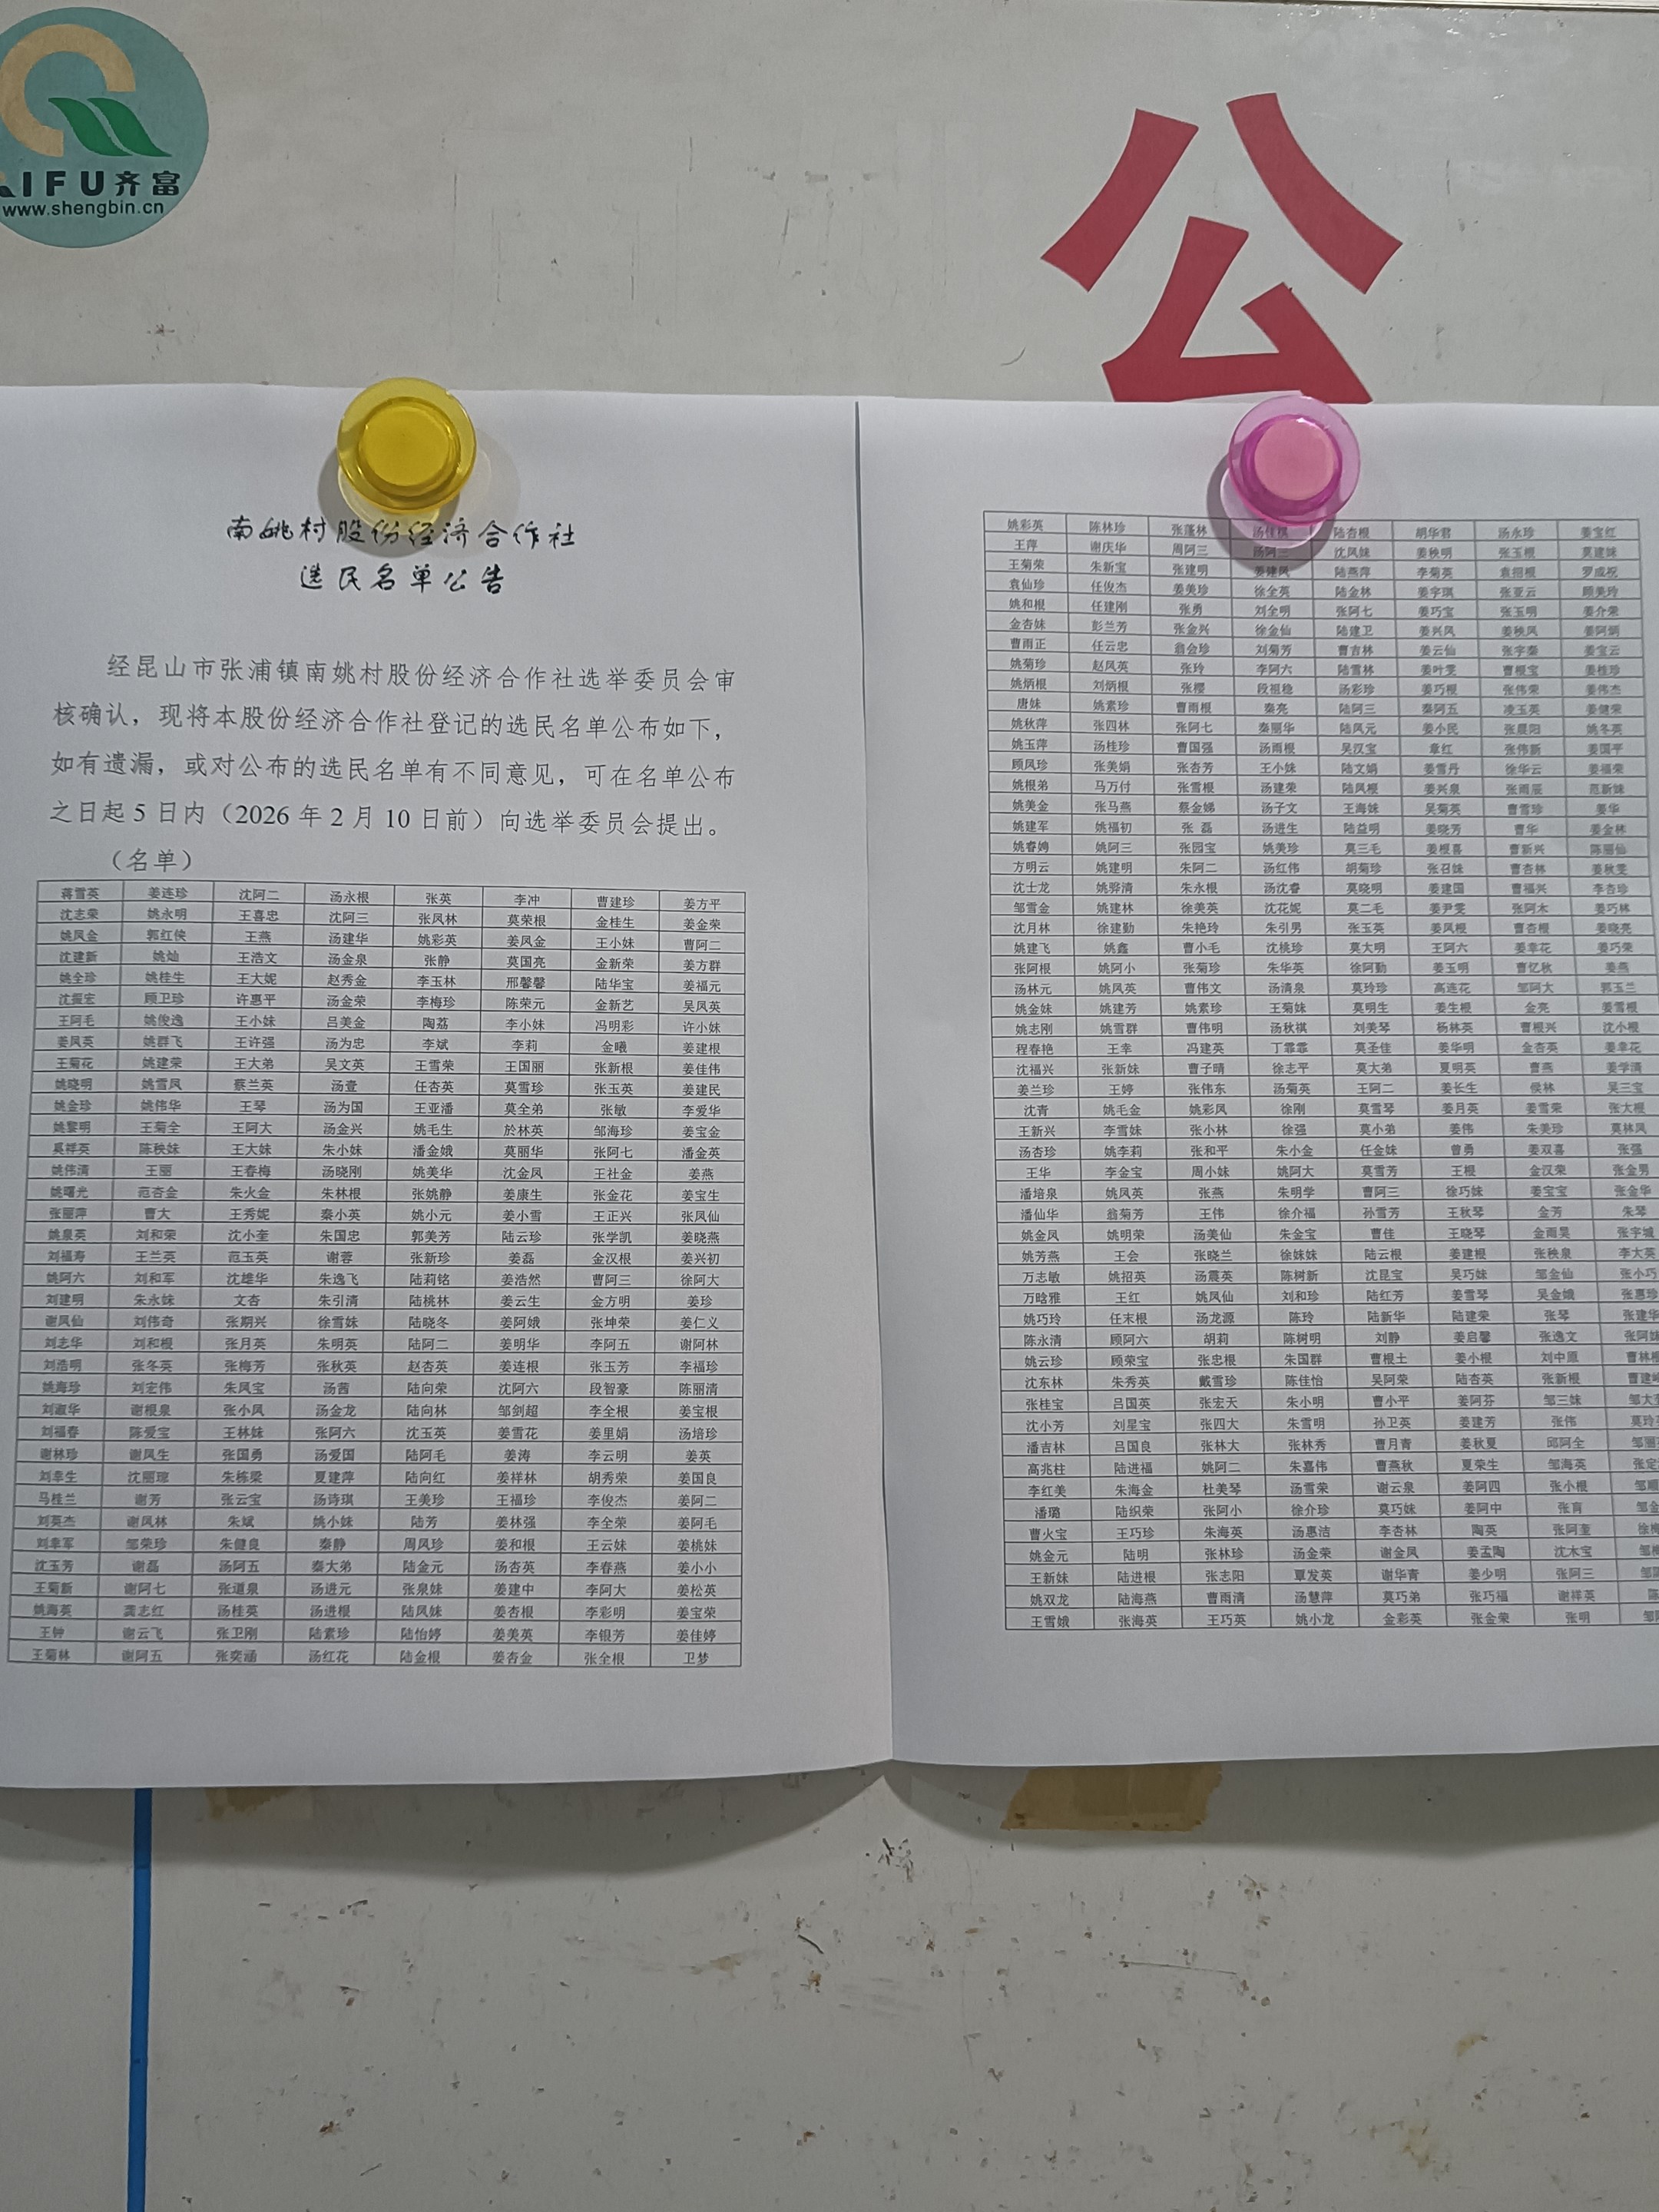 IFU齐富
www.shengbin.cn
公
南姚村股份经济合作社
选民名单公告
经昆山市张浦镇南姚村股份经济合作社选举委员会审
核确认，现将本股份经济合作社登记的选民名单公布如下，
如有遗漏，或对公布的选民名单有不同意见，可在名单公布
之日起5日内（2026年2月10日前）向选举委员会提出。
（名单）
蒋雪英 姜连珍 沈阿二 汤永根 张英 李冲 曹建珍 姜方平
沈志荣 姚永明 王喜忠 沈阿三 张凤林 莫荣根 金桂生 姜金荣
姚凤金 郭红侠 王燕 汤建华 姚彩英 姜凤金 王小妹 曹阿二
沈建新 姚灿 王浩文 汤金泉 张静 莫国亮 金新荣 姜方群
姚全珍 姚桂生 王大妮 赵秀金 李玉林 邢馨馨 陆华宝 姜福元
沈振宏 顾卫珍 许惠平 汤金荣 李梅珍 陈荣元 金新艺 吴凤英
王阿毛 姚俊逸 王小妹 吕美金 陶荔 李小妹 冯明彩 许小妹
姜凤英 姚群飞 王许强 汤为忠 李斌 李莉 金曦 姜建根
王菊花 姚建荣 王大弟 吴文英 王雪荣 王国丽 张新根 姜佳伟
姚晓明 姚雪凤 蔡兰英 汤壹 任杏英 莫雪珍 张玉英 姜建民
姚金珍 姚伟华 王琴 汤为国 王亚潘 莫全弟 张敏 李爱华
姚黎明 王菊全 王阿大 汤金兴 姚毛生 於林英 邹海珍 姜宝金
奚祥英 陈秧妹 王大妹 朱小妹 潘金娥 莫丽华 张阿七 潘金英
姚伟清 王丽 王春梅 汤晓刚 姚美华 沈金凤 王社金 姜燕
姚曙光 范杏金 朱火金 朱林根 张姚静 姜康生 张金花 姜宝生
张丽萍 曹大 王秀妮 秦小英 姚小元 姜小雪 王正兴 张凤仙
姚泉英 刘和荣 沈小奎 朱国忠 郭美芳 陆云珍 张学凯 姜晓燕
刘福寿 王兰英 范玉英 谢蓉 张新珍 姜磊 金汉根 姜兴初
姚阿六 刘和军 沈雄华 朱逸飞 陆莉铭 姜浩然 曹阿三 徐阿大
刘建明 朱永妹 文杏 朱引清 陆桃林 姜云生 金方明 姜珍
谢凤仙 刘伟奇 张期兴 徐雪妹 陆晓冬 姜阿娥 张坤荣 姜仁义
刘志华 刘和根 张月英 朱明英 陆阿二 姜明华 李阿五 谢阿林
刘浩明 张冬英 张梅芳 张秋英 赵杏英 姜连根 张玉芳 李福珍
姚海珍 刘宏伟 朱凤宝 汤茜 陆向荣 沈阿六 段智豪 陈丽清
刘淑华 谢根泉 张小凤 汤金龙 陆向林 邹剑超 李全根 姜宝根
刘福春 陈爱宝 王林妹 张阿六 沈玉英 姜雪花 姜里娟 汤培珍
谢林珍 谢凤生 张国勇 汤爱国 陆阿毛 姜涛 李云明 姜英
刘幸生 沈丽琼 朱栋梁 夏建萍 陆向红 姜祥林 胡秀荣 姜国良
马桂兰 谢芳 张云宝 汤诗琪 王美珍 王福珍 李俊杰 姜阿二
刘英杰 谢凤林 朱斌 姚小妹 陆芳 姜林强 李全荣 姜阿毛
刘幸军 邹荣珍 朱健良 秦静 周凤珍 姜和根 王云妹 姜桃妹
沈玉芳 谢磊 汤阿五 秦大弟 陆金元 汤杏英 李春燕 姜小小
王菊新 谢阿七 张道泉 汤进元 张泉妹 姜建中 李阿大 姜松英
姚海英 龚志红 汤桂英 汤进根 陆凤妹 姜杏根 李彩明 姜宝荣
王钟 谢云飞 张卫刚 陆素珍 陆怡婷 姜美英 李银芳 姜佳婷
王菊林 谢阿五 张奕涵 汤红花 陆金根 姜杏金 张全根 卫梦
姚彩英 陈林珍 张蓬林 汤佳祺 陆杏根 胡华君 汤永珍 姜宝红
王萍 谢庆华 周阿三 汤阿三 沈凤妹 姜秧明 张玉根 莫建妹
王菊荣 朱新宝 张建明 姜建凤 陆燕萍 李菊英 袁招根 罗成祝
袁仙珍 任俊杰 姜美珍 徐全英 陆金林 姜宇琪 张亚云 顾美玲
姚和根 任建刚 张勇 刘全明 张阿七 姜巧宝 张玉明 姜介荣
金杏妹 彭兰芳 张金兴 徐金仙 陆建卫 姜兴凤 姜秧凤 姜阿炳
曹雨正 任云忠 翁会珍 刘菊芳 曹吉林 姜云仙 张宇秦 姜宝云
姚菊珍 赵凤英 张玲 李阿六 陆雪林 姜叶雯 曹根宝 姜桂珍
姚炳根 刘炳根 张樱 段祖稳 汤彩珍 姜巧根 张伟荣 姜伟杰
唐妹 姚素珍 曹雨根 秦亮 陆阿三 秦阿五 凌玉英 姜健荣
姚秋萍 张四林 张阿七 秦丽华 陆凤元 姜小民 张晨阳 姚冬英
姚玉萍 汤桂珍 曹国强 汤雨根 吴汉宝 章红 张伟新 姜国平
顾凤珍 张美娟 张杏芳 王小妹 陆文娟 姜雪丹 徐华云 姜福荣
姚根弟 马万付 张雪根 汤建荣 陆凤根 姜兴泉 张雨辰 范新妹
姚美金 张马燕 蔡金娣 汤子文 王海妹 吴菊英 曹雪珍 姜华
姚建军 姚福初 张磊 汤进生 陆益明 姜晓芳 曹华 姜金林
姚睿娉 姚阿三 张园宝 姚美珍 莫三毛 姜根喜 曹新兴 陈丽仙
方明云 姚建明 朱阿二 汤红伟 胡菊珍 张召妹 曹杏林 姜秋雯
沈士龙 姚骅清 朱永根 汤沈睿 莫晓明 姜建国 曹福兴 李杏珍
邹雪金 姚建林 徐美英 沈花妮 莫二毛 姜尹雯 张阿木 姜巧林
沈月林 徐建勤 朱艳玲 朱引男 张玉英 姜凤根 曹杏根 姜晓亮
姚建飞 姚鑫 曹小毛 沈桃珍 莫大明 王阿六 姜幸花 姜巧荣
张阿根 姚阿小 张菊珍 朱华英 徐阿勤 姜玉明 曹忆秋 姜燕
汤林元 姚凤英 曹伟文 汤清泉 莫玲珍 高连花 邹阿大 郭玉兰
姚金妹 姚建芳 姚素珍 王菊妹 莫明生 姜生根 金亮 姜雪根
姚志刚 姚雪群 曹伟明 汤秋祺 刘美琴 杨林英 曹根兴 沈小根
程春艳 王幸 冯建英 丁霏霏 莫圣佳 姜华明 金杏英 姜幸花
沈福兴 张新妹 曹子晴 徐志平 莫大弟 夏明英 曹燕 姜学清
姜兰珍 王婷 张伟东 汤菊英 王阿二 姜长生 侯林 吴三宝
沈青 姚毛金 姚彩凤 徐刚 莫雪琴 姜月英 姜雪荣 张大根
王新兴 李雪妹 张小林 徐强 莫小弟 姜伟 朱美珍 莫林凤
汤杏珍 姚李莉 张和平 朱小金 任金妹 曾勇 姜双喜 张强
王华 李金宝 周小妹 姚阿大 莫雪芳 王根 金汉荣 张金男
潘培泉 姚凤英 张燕 朱明学 曹阿三 徐巧妹 姜宝宝 张金华
潘仙华 翁菊芳 王伟 徐介福 孙雪芳 王秋琴 金芳 朱琴
姚金凤 姚明荣 汤美仙 朱金宝 曹佳 王晓琴 金雨昊 张宇城
姚芳燕 王会 张晓兰 徐妹妹 陆云根 姜建根 张秧泉 李大英
万志敏 姚招英 汤震英 陈树新 沈昆宝 吴巧妹 邹金仙 张小巧
万晗雅 王红 姚凤仙 刘和珍 陆红芳 姜雪琴 吴金娥 张惠珍
姚巧玲 任末根 汤龙源 陈玲 陆新华 陆建荣 张琴 张建华
陈永清 顾阿六 胡莉 陈树明 刘静 姜启馨 张逸文 张阿妹
姚云珍 顾荣宝 张忠根 朱国群 曹根土 姜小根 刘中原 曹林根
沈东林 朱秀英 戴雪珍 陈佳怡 吴阿荣 陆杏英 张新根 曹建
张桂宝 吕国英 张宏天 朱小明 曹小平 姜阿芬 邹三妹 邹大
沈小芳 刘星宝 张四大 朱雪明 孙卫英 姜建芳 张伟 莫玲
潘吉林 吕国良 张林大 张林秀 曹月青 姜秋夏 邱阿全 邹丽
高兆柱 陆进福 姚阿二 朱嘉伟 曹燕秋 夏荣生 邹海英 张定
李红美 朱海金 杜美琴 汤雪荣 谢云泉 姜阿四 张小根 邹
潘璐 陆织荣 张阿小 徐介珍 莫巧妹 姜阿中 张育 邹金
曹火宝 王巧珍 朱海英 汤惠洁 李杏林 陶英 张阿奎 徐
姚金元 陆明 张林珍 汤金荣 谢金凤 姜孟陶 沈木宝 邹
王新妹 陆进根 张志阳 覃发英 谢华青 姜少明 张阿三 邹
姚双龙 陆海燕 曹雨清 汤慧萍 莫巧弟 张巧福 谢祥英 陈
王雪娥 张海英 王巧英 姚小龙 金彩英 张金荣 张明 邹